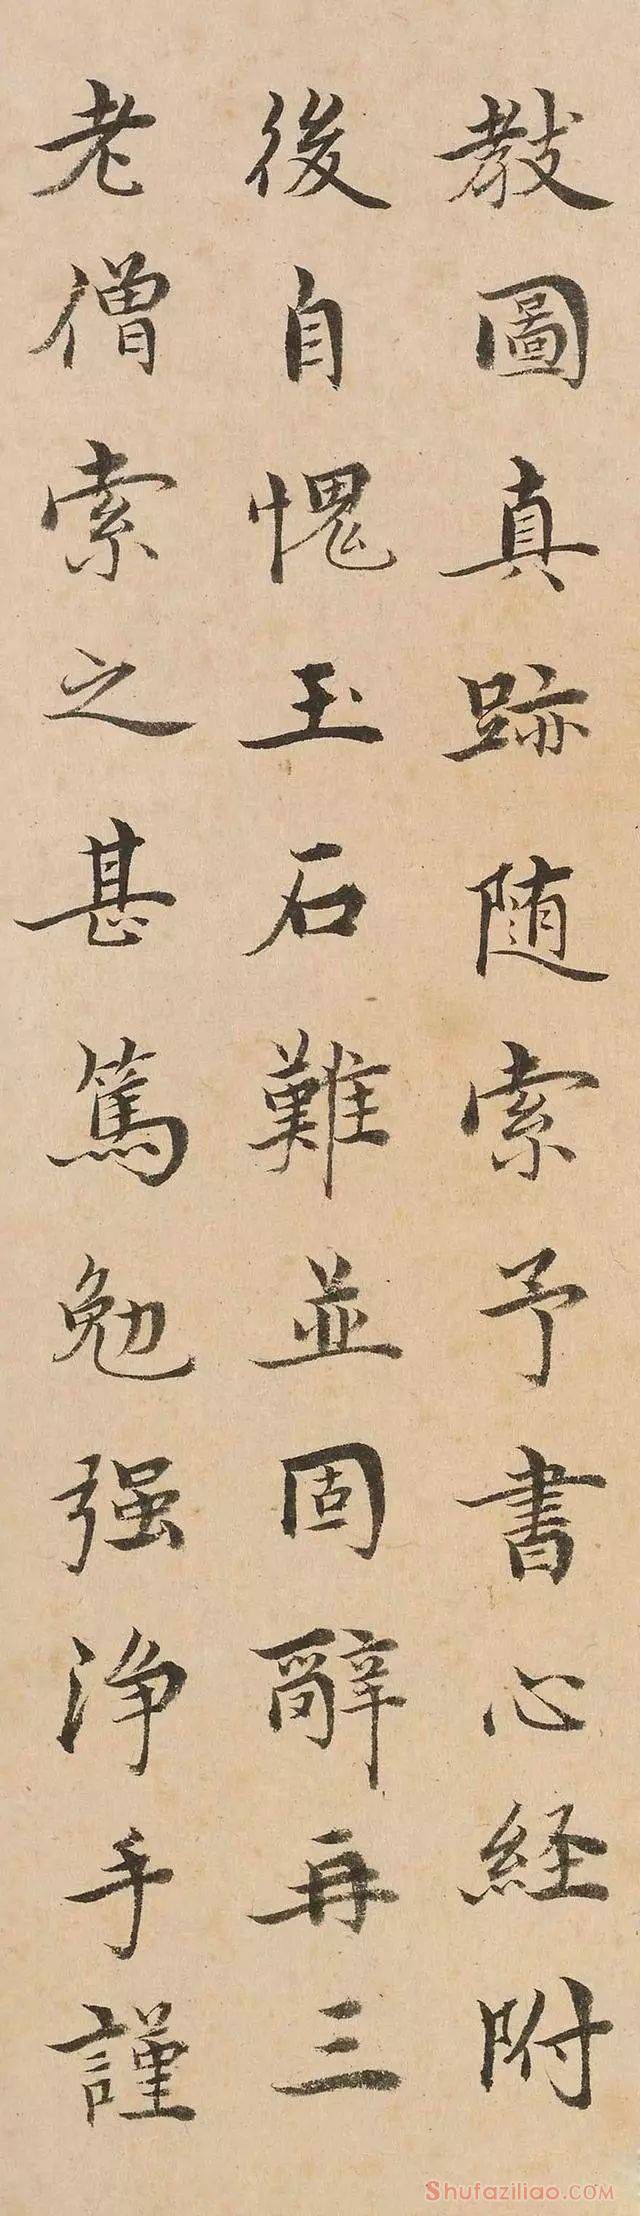 教圖真跡随索予書心経附
後自愧玉石難並固辭再三
老僧索之甚篤勉强浄手謹
Shufaziliao.COM